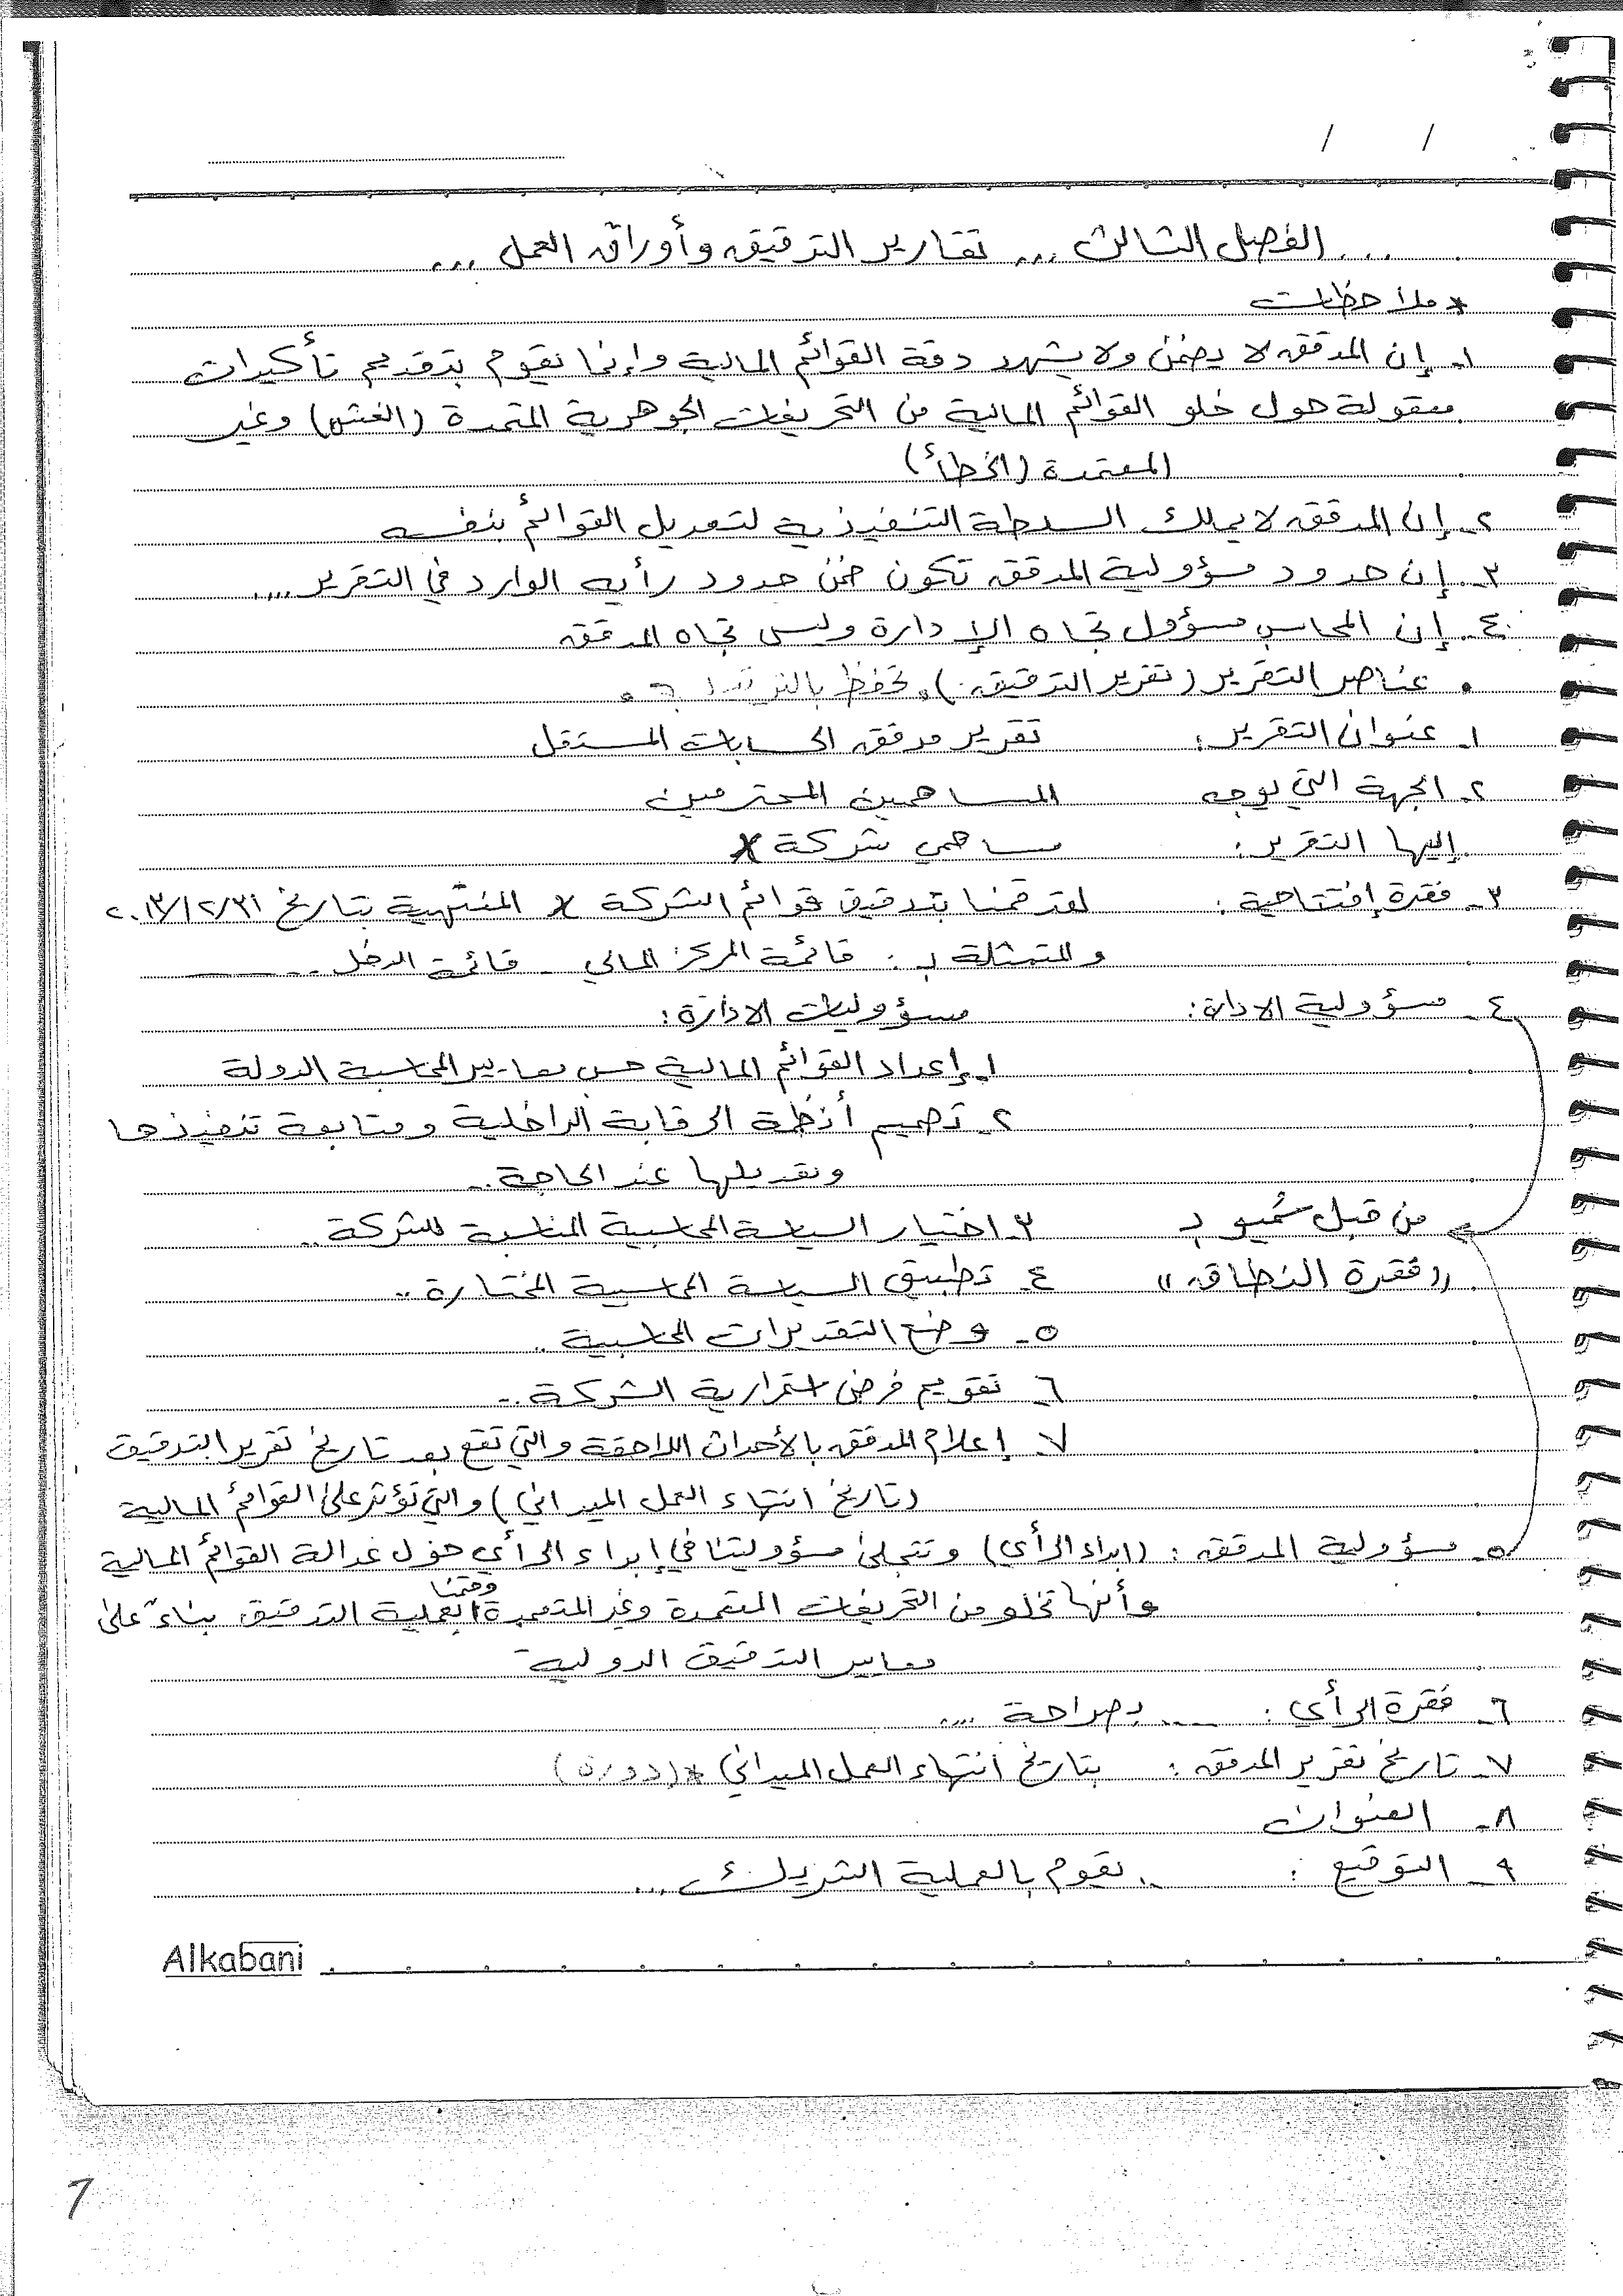 / /
... الفصل الثالث ... تقارير التدقيق وأوراق العمل ...
* ملاحظات
١- إن المدقق لا يضمن ولا يشهد دقة القوائم المالية وإنما يقوم بتقديم تأكيدات
معقولة حول خلو القوائم المالية من التحريفات الجوهرية المتعمدة (الغش) وغير
المعتمدة (الخطأ)
٢- إن المدقق لا يملك السلطة التنفيذية لتعديل القوائم بنفسه
٣- إن حدود مسؤولية المدقق تكون ضمن حدود رأيه الوارد في التقرير ....
٤- إن المحاسب مسؤول تجاه الإدارة وليس تجاه المدقق
• عناصر التقرير (تقرير التدقيق) تحفظ بالترتيب
١- عنوان التقرير: تقرير مدقق الحسابات المستقل
٢- الجهة التي يوجه المساهمين المحترمين
إليها التقرير: مساهمي شركة X
٣- فقرة إفتتاحية: لقد قمنا بتدقيق قوائم الشركة X المنتهية بتاريخ ٢٠١٣/١٢/٣١
والمتمثلة بـ: قائمة المركز المالي - قائمة الدخل ..
٤- مسؤولية الادارة: مسؤوليات الادارة:
١- إعداد القوائم المالية حسب معايير المحاسبة الدولة
٢- تصميم أنظمة الرقابة الداخلية ومتابعة تنفيذها
وتعديلها عند الحاجة..
من قبل سُميو بـ ٣- اختيار السياسة المحاسبية المناسبة للشركة..
"فقرة النطاق" ٤- تطبيق السياسة المحاسبية المختارة..
٥- وضع التقديرات المحاسبية..
٦- تقويم فرض استمرارية الشركة..
٧- إعلام المدقق بالأحداث اللاحقة والتي تقع بعد تاريخ تقرير التدقيق
(تاريخ انتهاء العمل الميداني) والتي تؤثر على القوائم المالية
٥- مسؤولية المدقق: (ابداء الرأي) وتتجلى مسؤوليتنا في إبداء الرأي حول عدالة القوائم المالية
وأنها تخلو من التحريفات المتعمدة وغير المتعمدة وقمنا بعملية التدقيق بناءً على
معايير التدقيق الدولية
٦- فقرة الرأي: .... بصراحة ....
٧- تاريخ تقرير المدقق: بتاريخ انتهاء العمل الميداني * (دورة)
٨- العنوان
٩- التوقيع: .. نقوم بالعملية الشريك ...
Alkabani
7